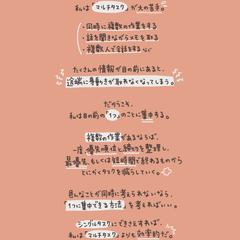 私は「マルチタスク」が大の苦手。
・同時に複数の作業をする
・話を聞きながらメモを取る
・複数人で会話をする など
たくさんの情報が目の前にあると、
途端に身動きが取れなくなってしまう。
だからこそ、
私は目の前の「1つ」のことに集中する。
複数の作業があるならば、
一度、優先順位と締切りを整理し、
最優先、もしくは短時間で終わるものから
とにかくタスクを減らしていく。
色んなことが同時に考えられないなら、
「1つに集中できる方法」を考えればいい。
シングルタスクにできさえすれば、
私は「マルチタスク」よりも効率的だ。